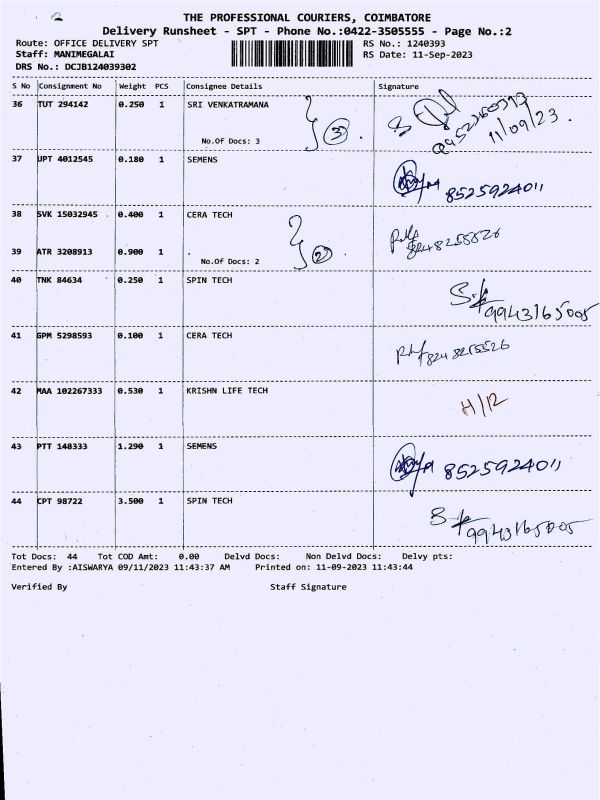 2
THE PROFESSIONAL COURIERS, COIMBATORE
Delivery Runsheet - SPT - Phone No.:0422-3505555 - Page No.:2
Route: OFFICE DELIVERY SPT RS No.: 1240393
Staff: MANIMEGALAI RS Date: 11-Sep-2023
DRS No.: DCJB124039302
S No Consignment No Weight PCS Consignee Details Signature
36 TUT 294142 0.250 1 SRI VENKATRAMANA
No.Of Docs: 3 3 11/09/23.
37 UPT 4012545 0.180 1 SEMENS
8525924011
38 SVK 15032945 0.400 1 CERA TECH
39 ATR 3208913 0.900 1 No.Of Docs: 2 2
40 TNK 84634 0.250 1 SPIN TECH
9943165005
41 GPM 5298593 0.100 1 CERA TECH
42 MAA 102267333 0.530 1 KRISHN LIFE TECH
H/R
43 PTT 148333 1.290 1 SEMENS
8525924011
44 CPT 98722 3.500 1 SPIN TECH
9943165005
Tot Docs: 44 Tot COD Amt: 0.00 Delvd Docs: Non Delvd Docs: Delvy pts:
Entered By :AISWARYA 09/11/2023 11:43:37 AM Printed on: 11-09-2023 11:43:44
Verified By Staff Signature